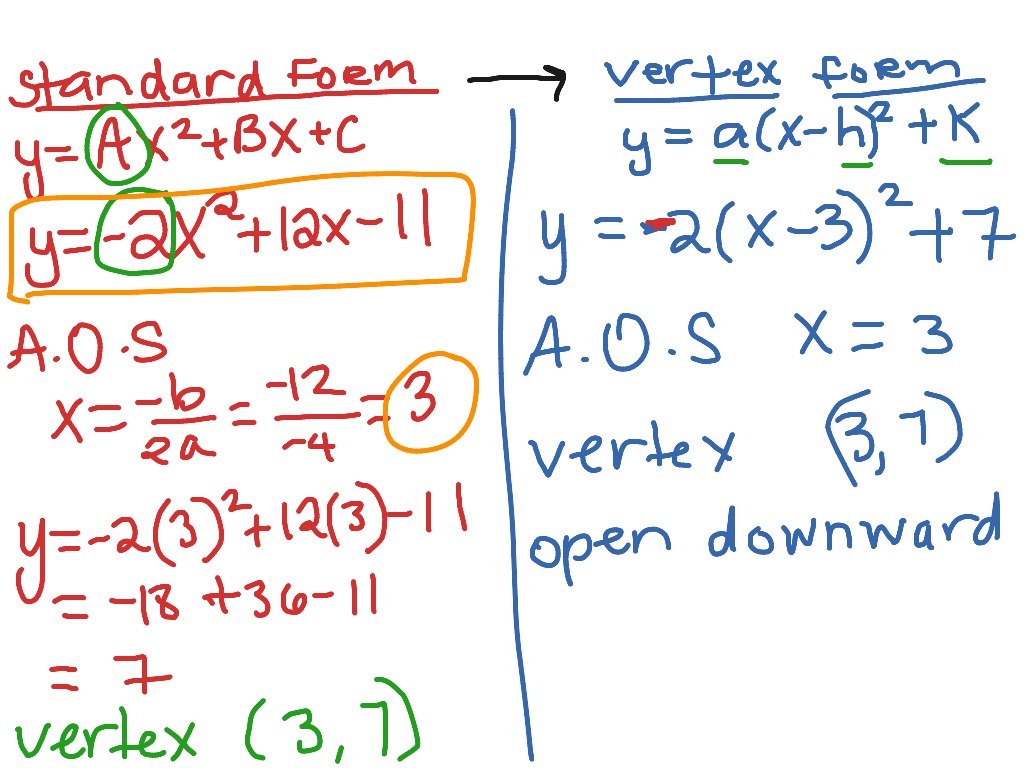 Standard Form
y = Ax² + Bx + C
y = -2x² + 12x - 11
A.O.S
x = -b/2a = -12/-4 = 3
y = -2(3)² + 12(3) - 11
= -18 + 36 - 11
= 7
vertex (3, 7)
vertex form
y = a(x-h)² + K
y = -2(x-3)² + 7
A.O.S x = 3
vertex (3, 7)
open downward